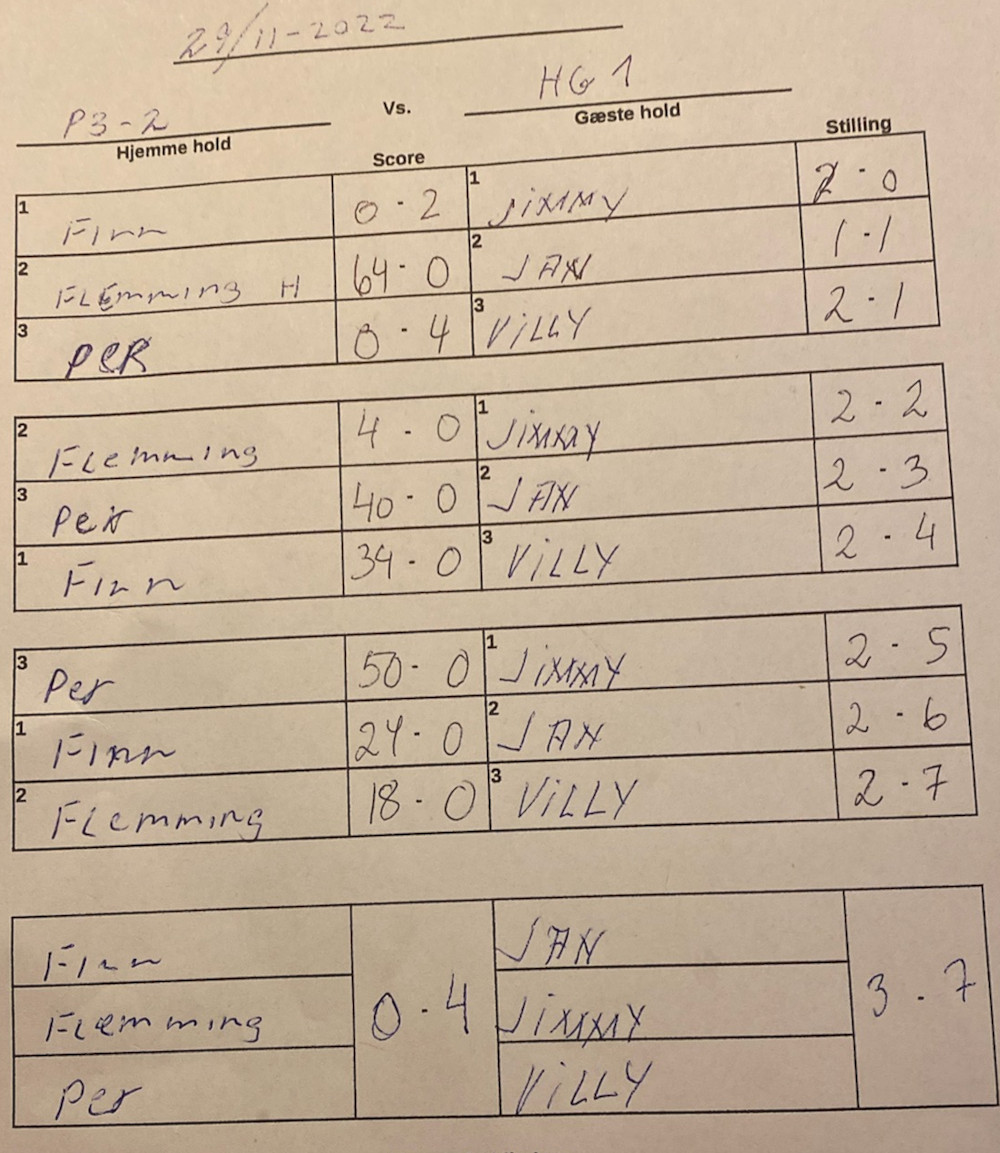 29/11-2022
P3-2 Vs. HG 1
Hjemme hold Gæste hold
Score Stilling
1 Finn 0-2 1 JiMMY -0
2 FLEmming H 64-0 2 JAN 1-1
3 PER 0-4 3 ViLLY 2-1
2 FLemming 4-0 1 JiMMY 2-2
3 Per 40-0 2 JAN 2-3
1 Finn 34-0 3 ViLLY 2-4
3 Per 50-0 1 JiMMY 2-5
1 Finn 24-0 2 JAN 2-6
2 FLemming 18-0 3 ViLLY 2-7
Finn JAN
FLemming 0-4 JiMMY 3-7
Per ViLLY